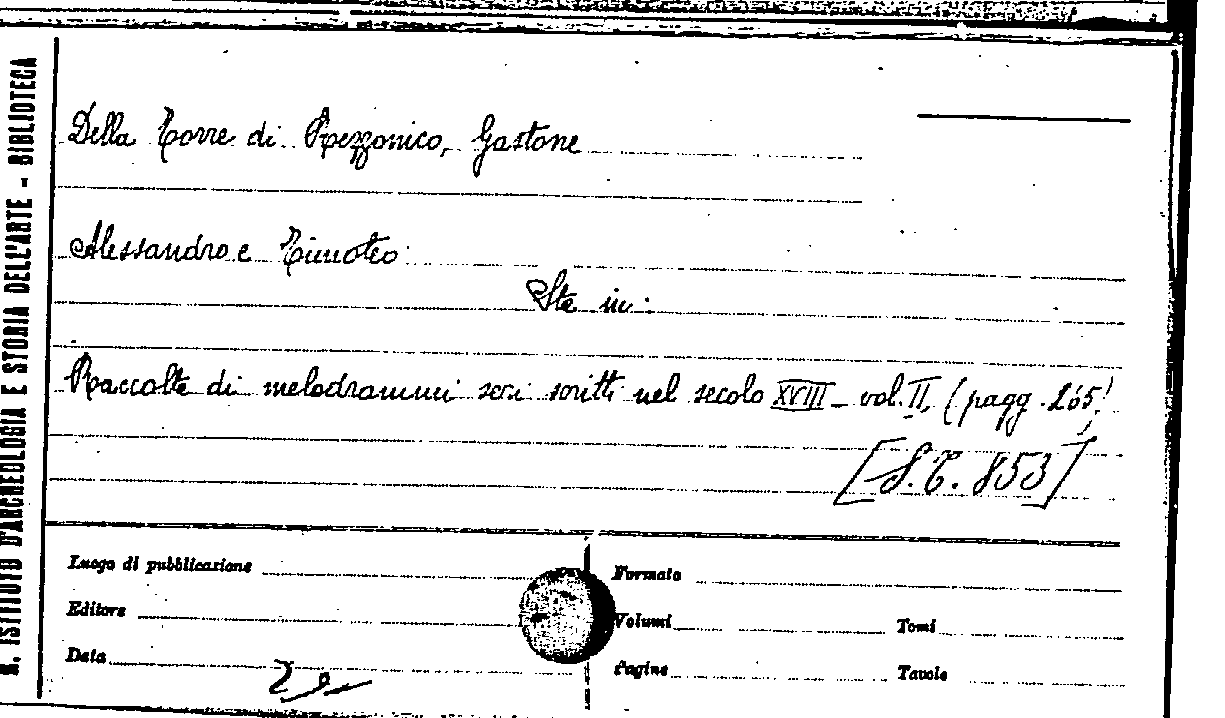 R. ISTITUTO D'ARCHEOLOGIA E STORIA DELL'ARTE - BIBLIOTECA
Della Torre di Rezzonico, Gastone
Alessandro e Timoteo
Sta in:
Raccolta di melodrammi seri scritti nel secolo XVIII - vol. II, (pagg. 265)
[S.T. 853]
Luogo di pubblicazione
Formato
Editore
Volumi
Tomi
Data
Pagine
Tavole